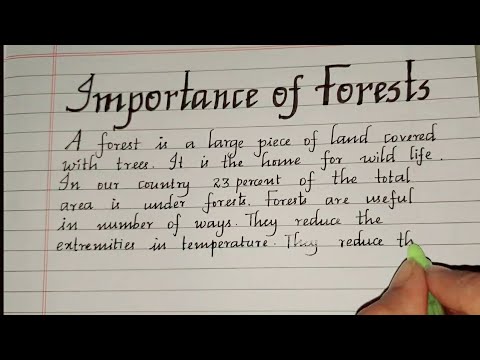 Importance of Forests
A forest is a large piece of land covered
with trees. It is the home for wild life.
In our country 23 percent of the total
area is under forests. Forests are useful
in number of ways. They reduce the
extremities in temperature. They reduce th